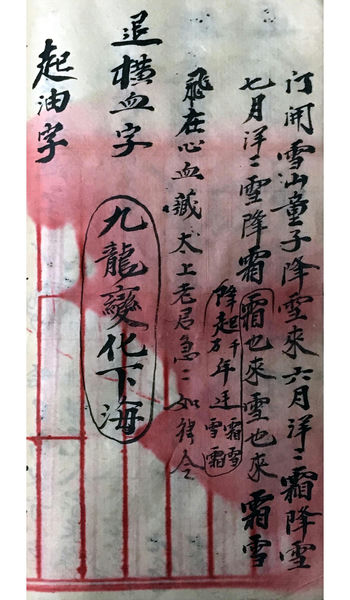 開雪山童子降雪來六月洋二霜降雪
七月洋二雪降霜霜也來雪也來霜雪
降起千万年
霜雪
雪霜
飛在心血藏太上老君急二如律令
退橫血字
九龍變化下海
起油字